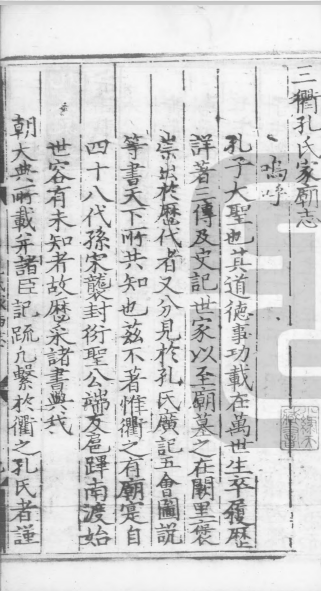 三衢孔氏家廟志
嗚呼
孔子大聖也其道德事功載在萬世生卒履歷
詳著三傳及史記世家以至廟墓之在闕里褒
崇出於歷代者又分見於孔氏廣記五會圖説
等書天下所共知也茲不著惟衢之有廟寔自
四十八代孫宋襲封衍聖公端友扈蹕南渡始
世容有未知者故歷采諸書與我
朝大典所載幷諸臣記疏凡繫於衢之孔氏者謹